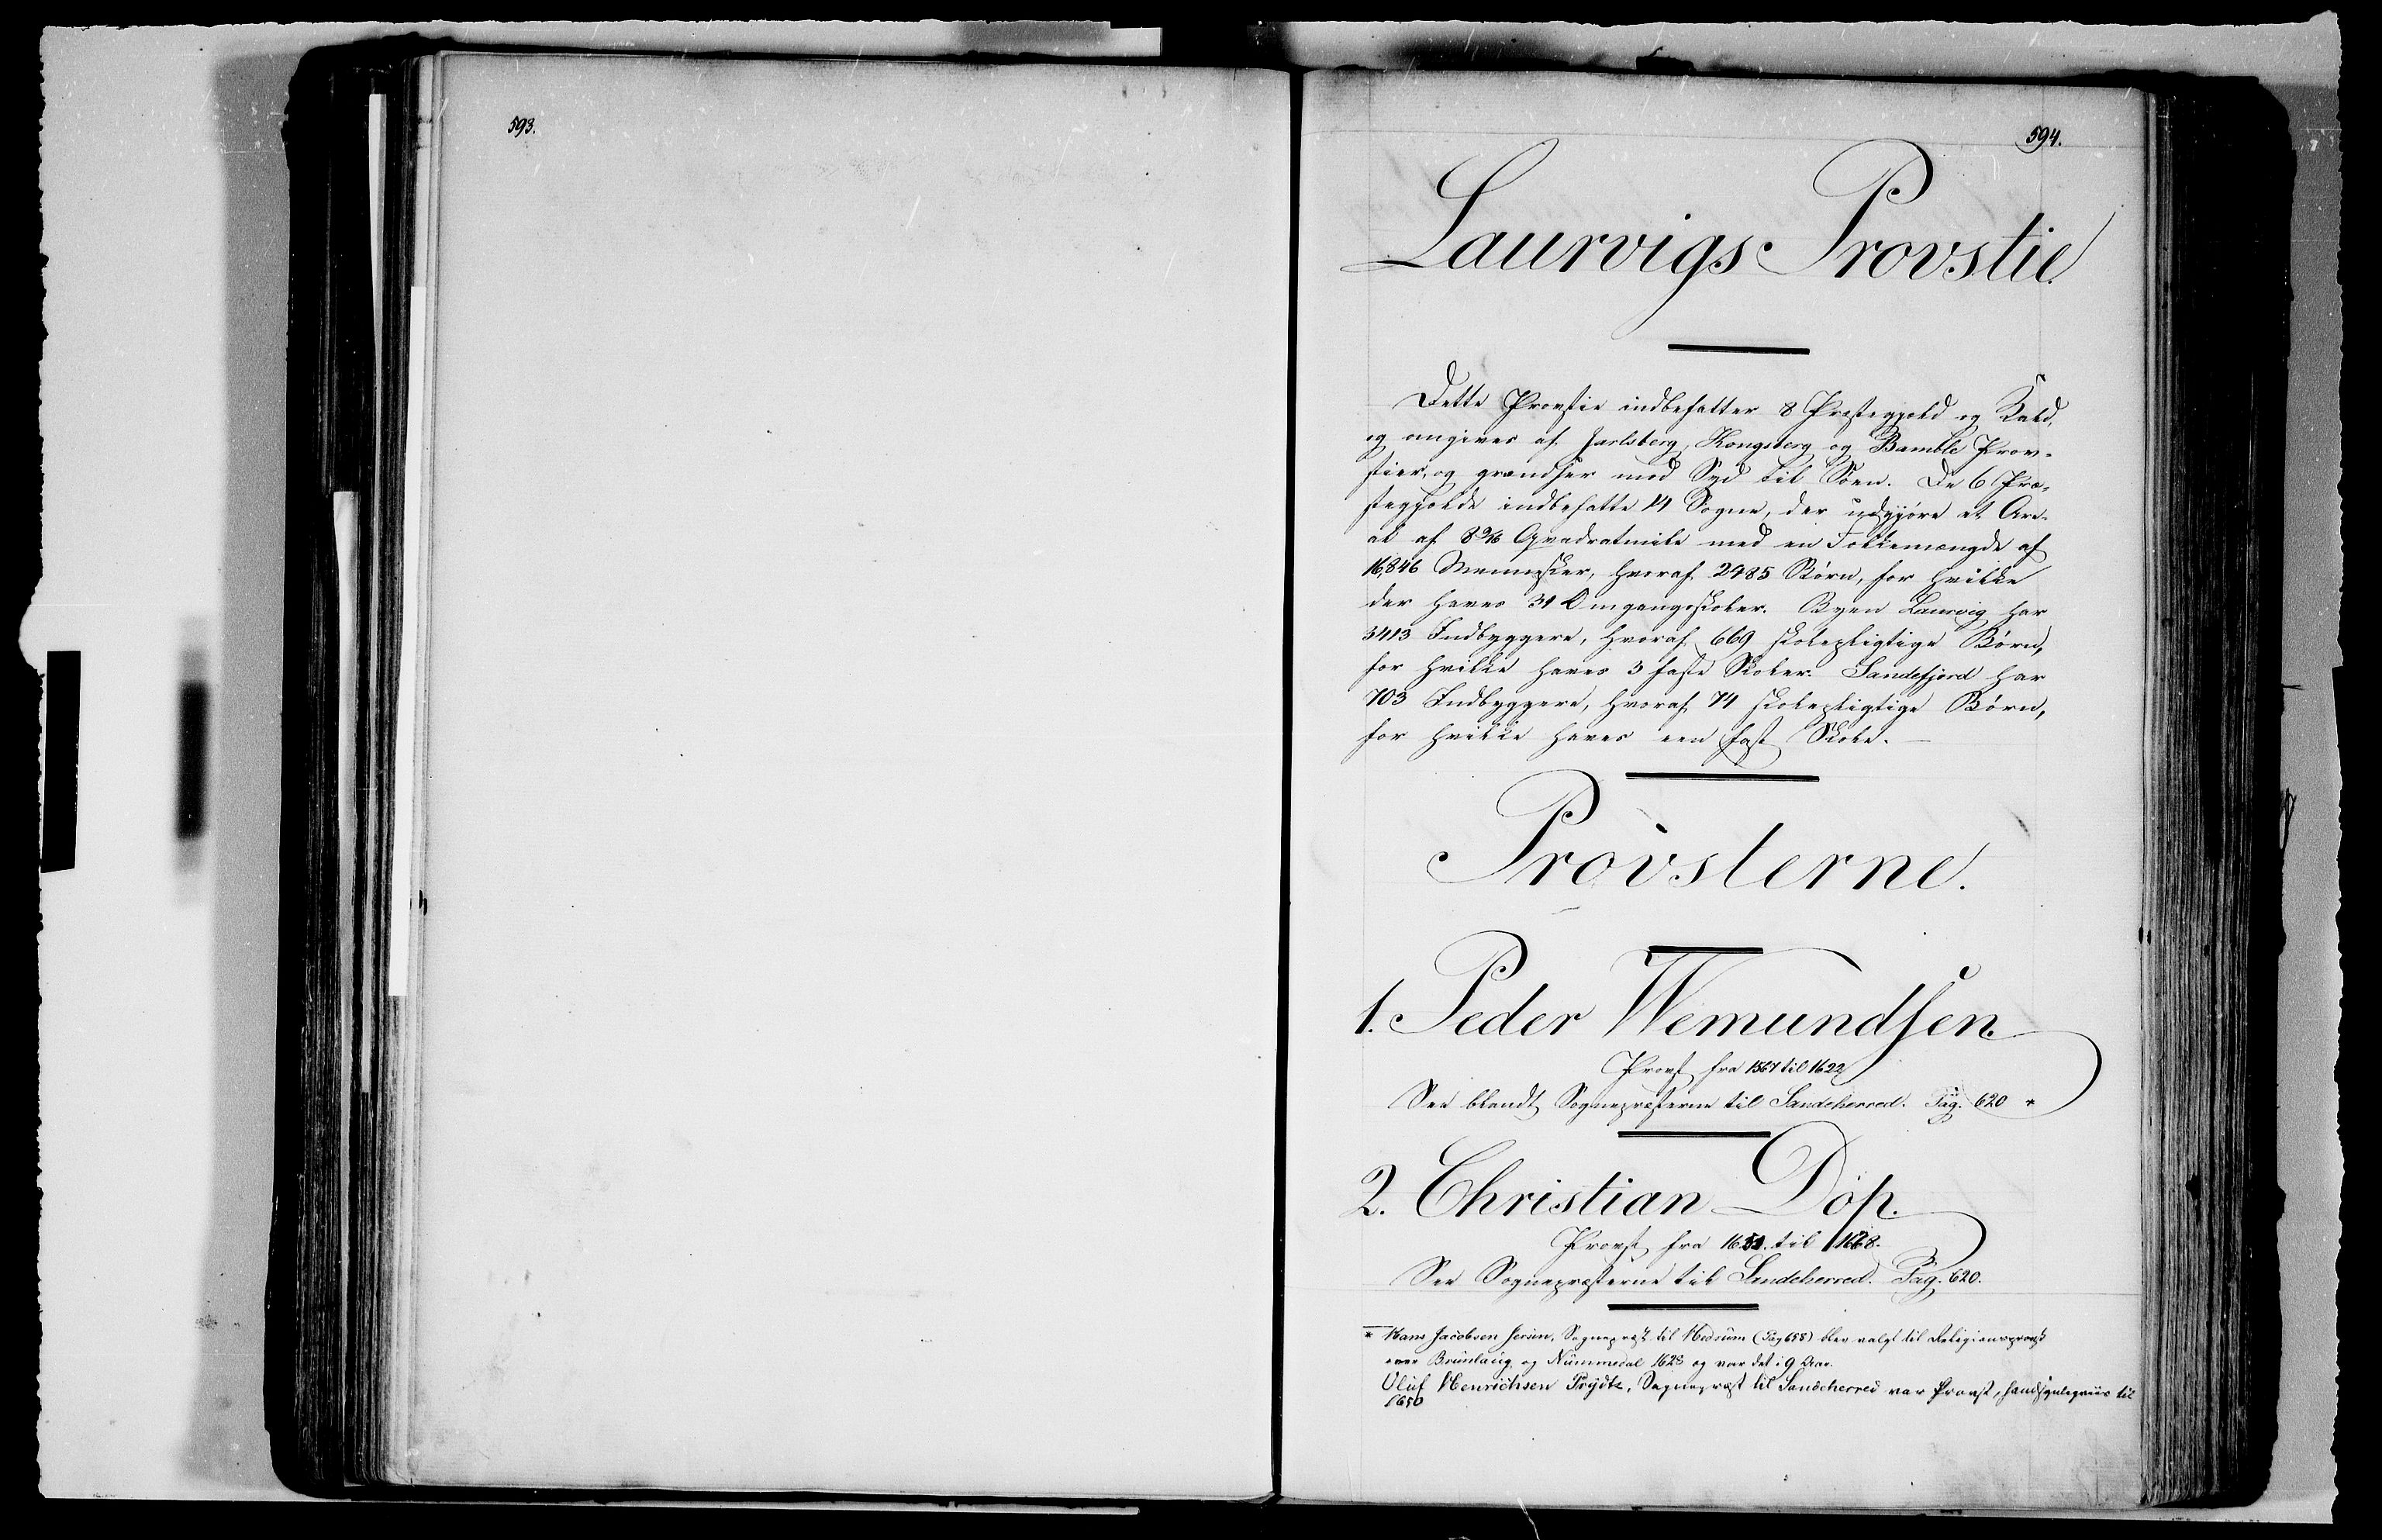 593.
594.
Laurvigs Provstie.
Dette Provstie indbefatter 8 Præstegjeld og Kald,
og omgives af Jarlsberg, Kongsberg og Bamble Prov-
stier, og grændser mod Syd til Søen. De 6 Præ-
stegjelde indbefatte 14 Sogne, der udgjøre et Are-
al af 8 9/16 Qvadratmile med en Folkemængde af
16,846 Mennesker, hvoraf 2985 Børn, for hvilke
der haves 31 Omgangsskoler. Byen Laurvig har
3413 Indbyggere, hvoraf 669 skolepligtige Børn,
for hvilke haves 3 faste Skoler. Sandefjord har
703 Indbyggere, hvoraf 74 skolepligtige Børn,
for hvilke haves een fast Skole. —
Provsterne.
1. Peder Wemundsen.
Provst fra 1567 til 1622
See blandt Sognepræsterne til Sandeherred. Pag. 620 *
2. Christian Dop.
Provst fra til
See Sognepræsterne til Sandeherred. Pag. 620.
* Hans Jacobsen Sognepræst til Hedrum (Pag 658) blev valgt til Religionsprovst
over Brunlaug og Nummedal 1623 og var det i 9 Aar.
Oluf Henrichsen Prydtz, Sognepræst til Sandeherred var Provst, sandsynligviis til
1650